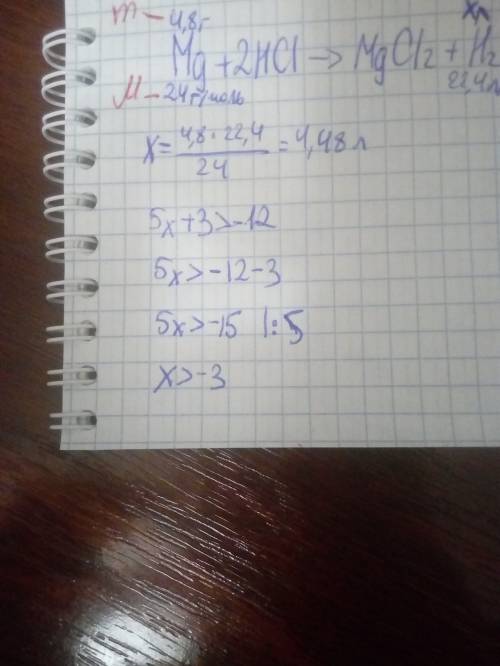 m - 4,8 г
x л
Mg + 2HCl → MgCl₂ + H₂
M - 24 г/моль
22,4 л
x = 4,8 · 22,4 / 24 = 4,48 л
5x + 3 > -12
5x > -12 - 3
5x > -15 |: 5
x > -3